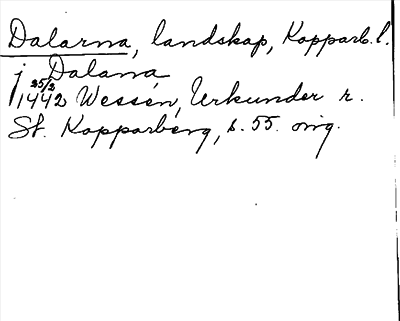 Dalarna, landskap, Kopparb. l.
j Dalana
1442 25/2 Wessén, Urkunder r.
St. Kopparberg, s. 55. orig.